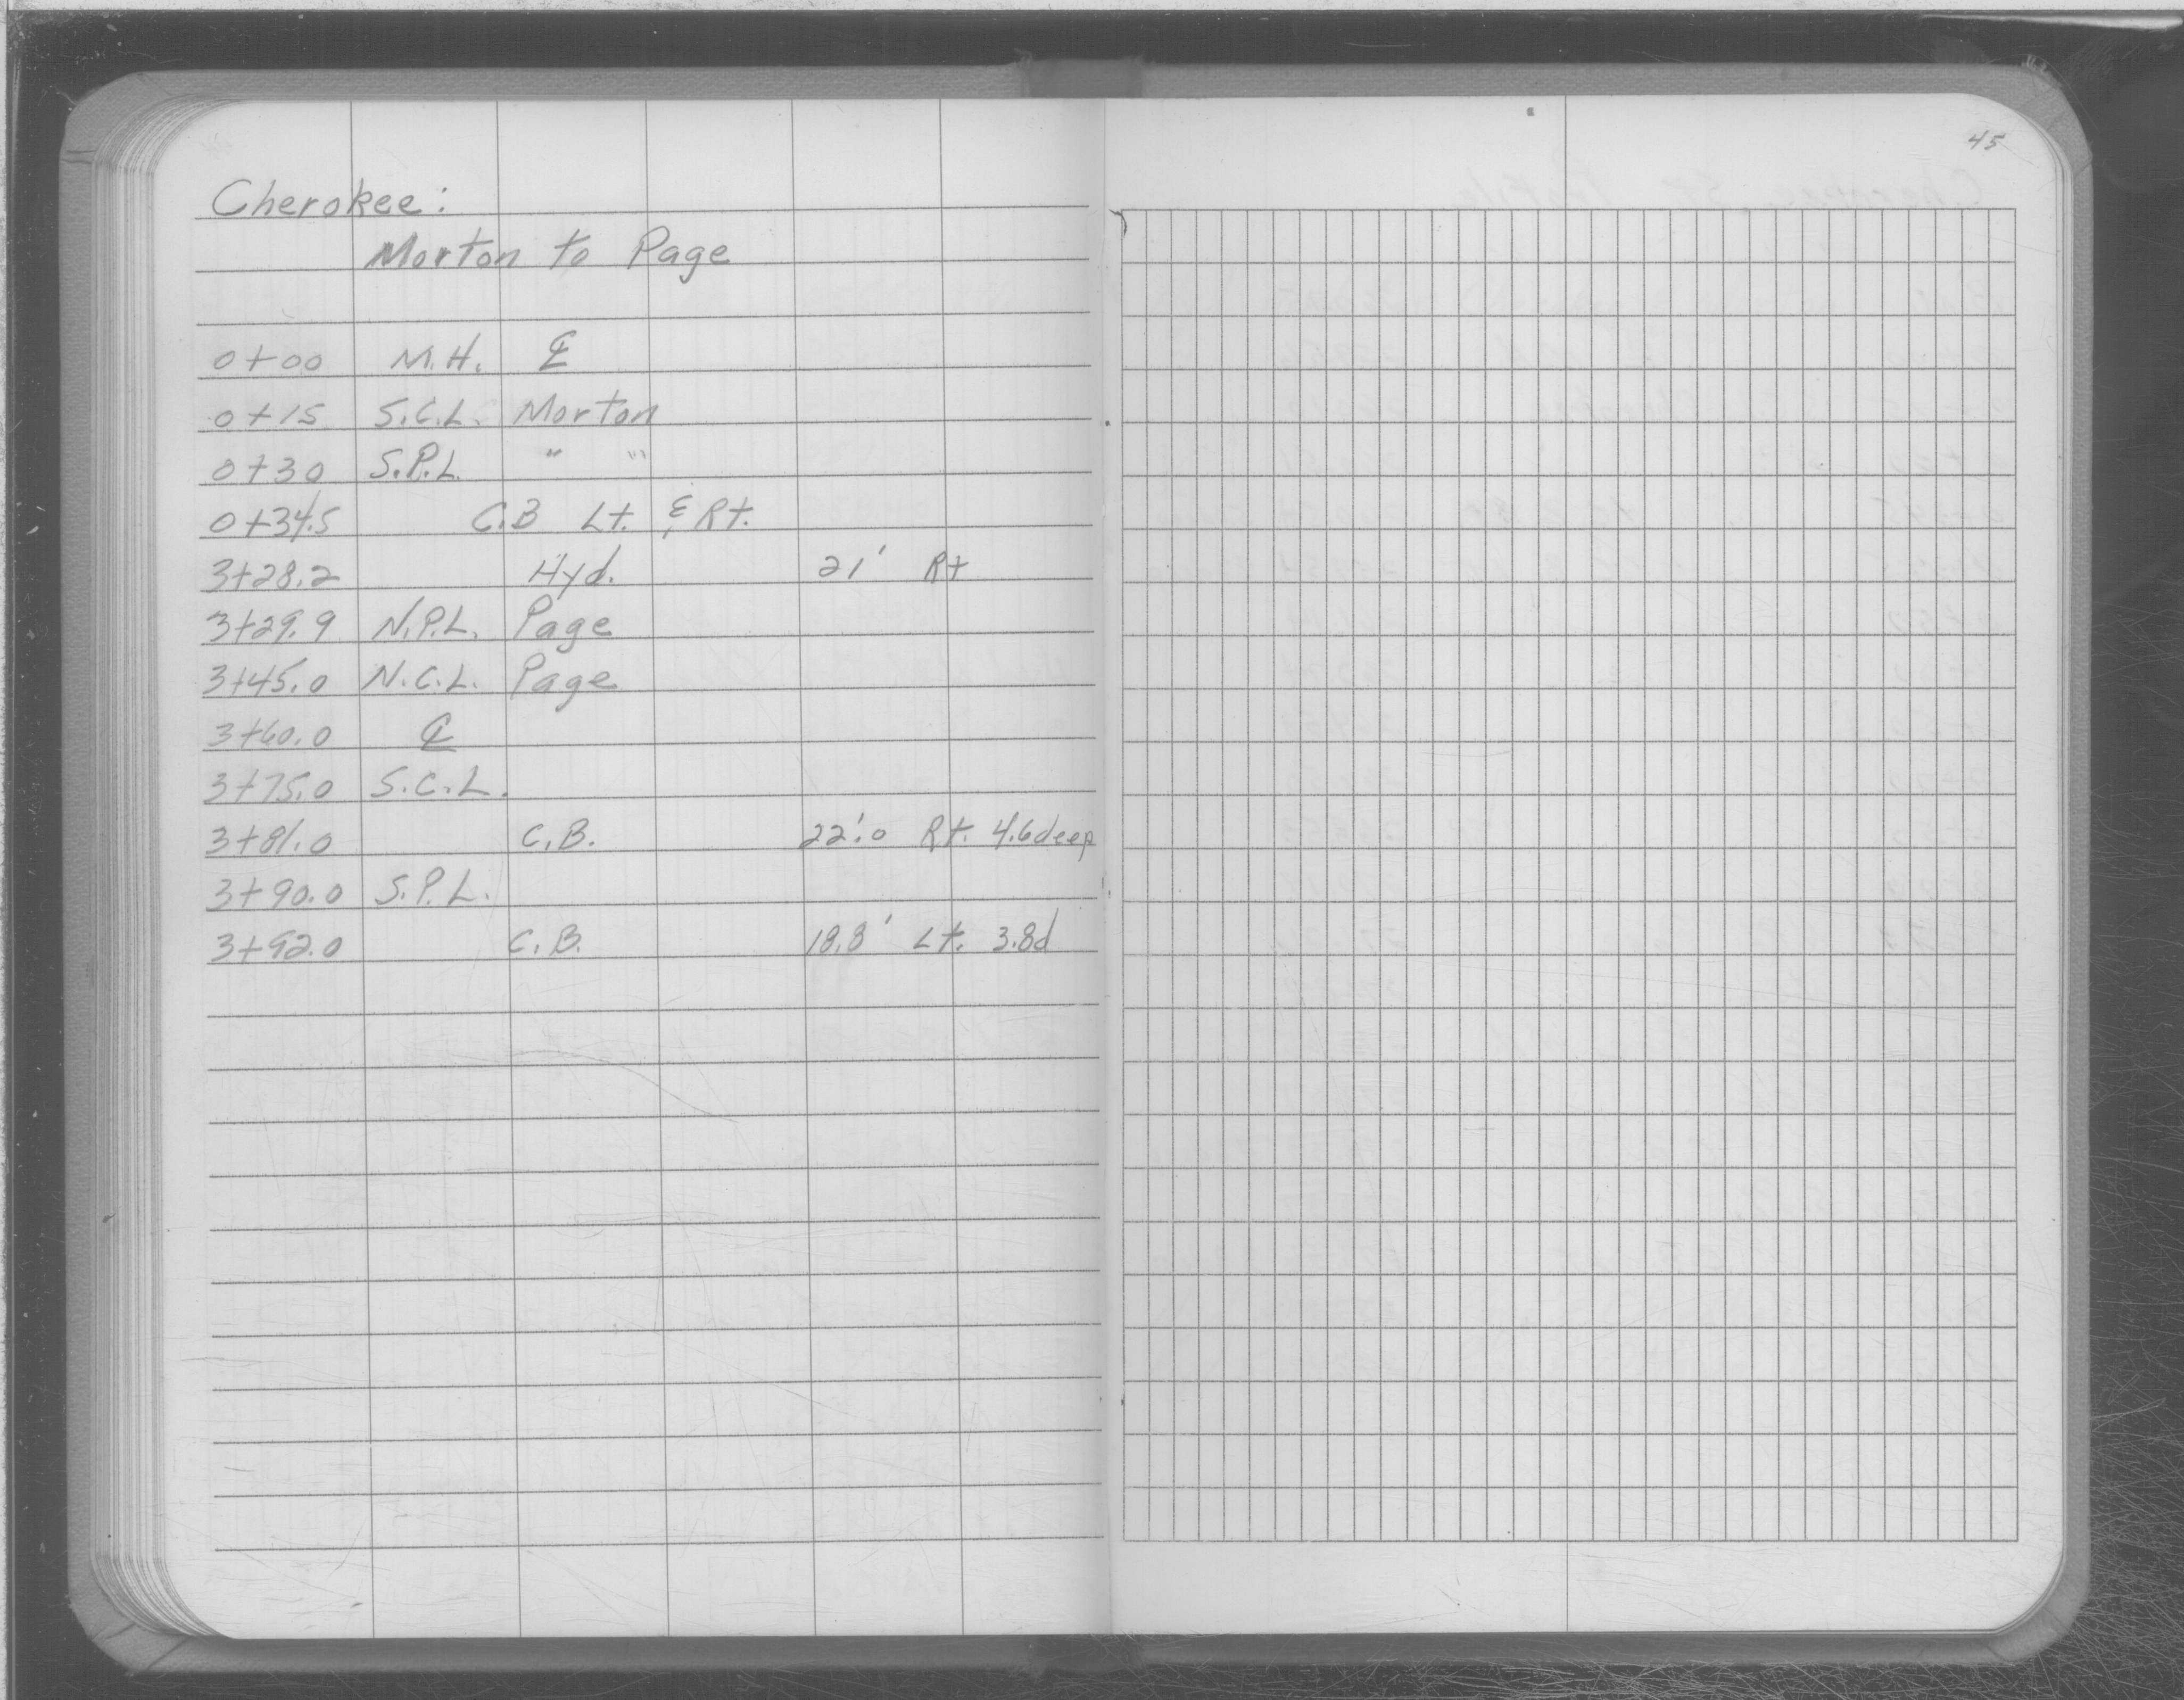 45
Cherokee:
Morton to Page
0+00 M.H. ℄
0+15 S.C.L. Morton
0+30 S.P.L. " "
0+34.5 C.B Lt. & Rt.
3+28.2 Hyd. 21' Rt
3+29.9 N.P.L. Page
3+45.0 N.C.L. Page
3+60.0 ℄
3+75.0 S.C.L.
3+81.0 C.B. 22'.0 Rt. 4.6 deep
3+90.0 S.P.L.
3+92.0 C.B. 18.8' Lt. 3.8d